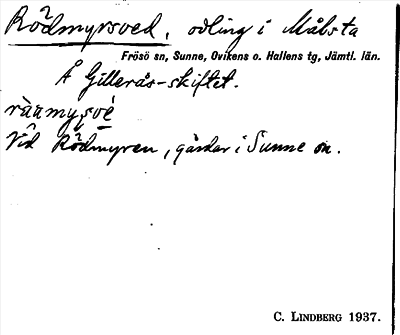 Rödmyrsved, odling i Målsta
Frösö sn, Sunne, Ovikens o. Hallens tg, Jämtl. län.
Å Gillerås-skiftet.
ràamysvé
Vid Rödmyren, gårdar i Sunne sn.
C. LINDBERG 1937.